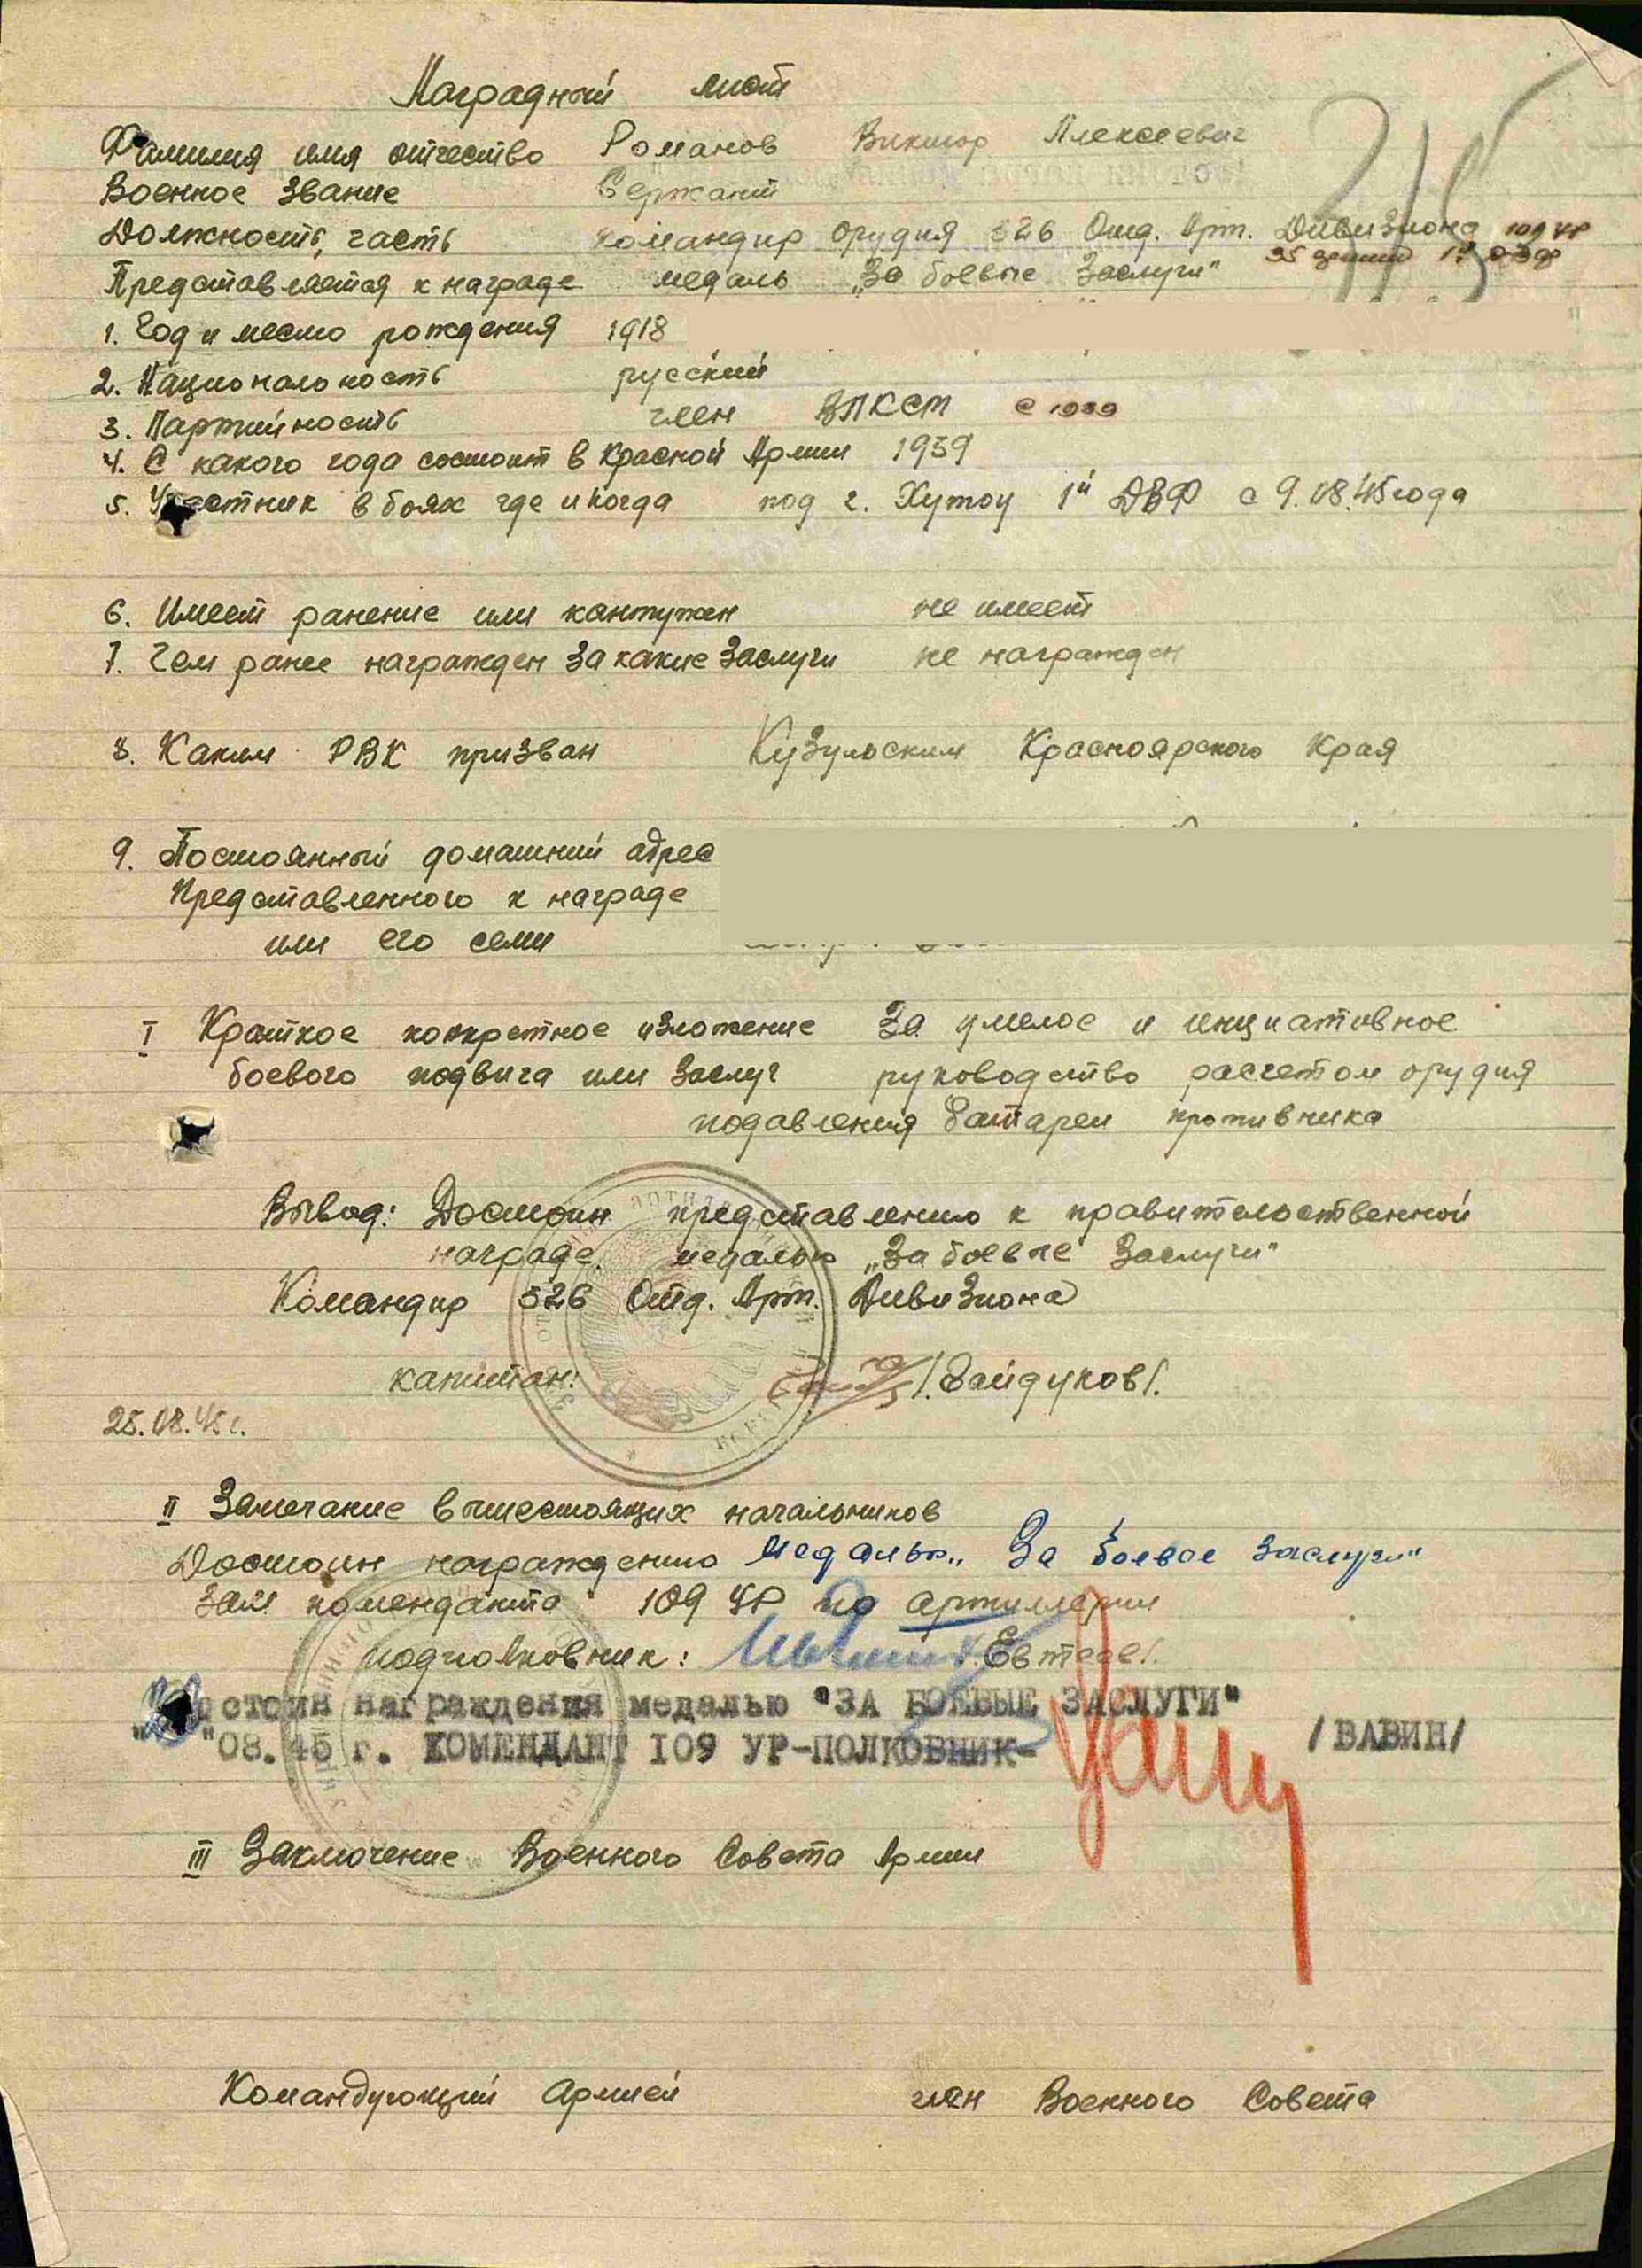 Наградный лист
Фамилия имя отчество Романов Виктор Алексеевич
Военное звание Сержант
Должность, часть командир орудия 526 Отд. Арт. Дивизиона 109 УР
35 армии 1го ДВФ
Представляется к награде медаль „За боевые Заслуги"
1. Год и место рождения 1918
2. Национальность русский
3. Партийность член ВЛКСМ с 1939
4. С какого года состоит в Красной Армии 1939
5. Участник в боях где и когда под г. Хутоу 1й ДВФ с 9.08.45 года
6. Имеет ранение или кантужен не имеет
7. Чем ранее награжден за какие заслуги не награжден
8. Каким РВК призван Кузульским Красноярского Края
9. Постоянный домашний адрес
Представленного к награде
или его семи
I Краткое конкретное изложение За умелое и инциативное
боевого подвига или заслуг руководство расчетом орудия
подавления батареи противника
Вывод: Достоин представлению к правительственной
награде. медалью „За боевые Заслуги"
Командир 526 Отд. Арт. Дивизиона
капитан: /.Гайдуков/.
25.08.45г.
II Замечание вышестоящих начальников
Достоин награждению медалью „За боевое заслуги"
Зам коменданта 109 УР по артиллерии
подполковник: Евтеев/.
Достоин награждения медалью "ЗА БОЕВЫЕ ЗАСЛУГИ"
"08.45 г. КОМЕНДАНТ I09 УР-ПОЛКОВНИК- /ВАВИН/
III Заключение Военного Совета Армии
Командующий Армией член Военного Совета